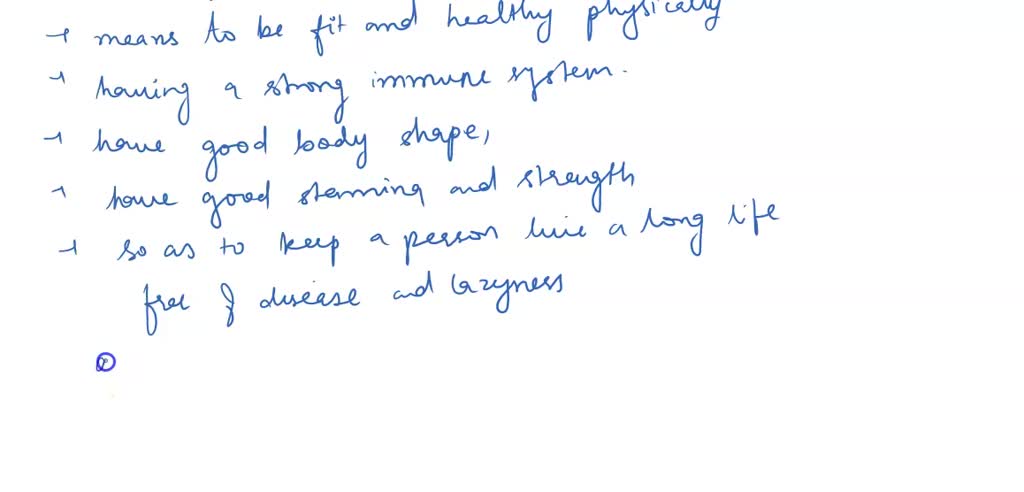 → means to be fit and healthy physically
→ having a strong immune system.
→ have good body shape,
→ have good stemming and strength
→ so as to keep a person live a long life
free of disease and lazyness